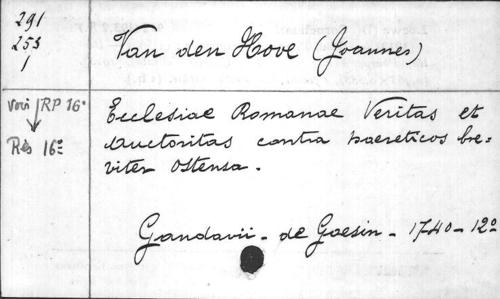 291
253
1
Van den Hove (Joannes)
voir RP 16°
Rés 16°
Ecclesiae Romanae Veritas et
auctoritas contra haereticos bre-
viter ostensa.
Gandavii - de Goesin - 1740 - 12°